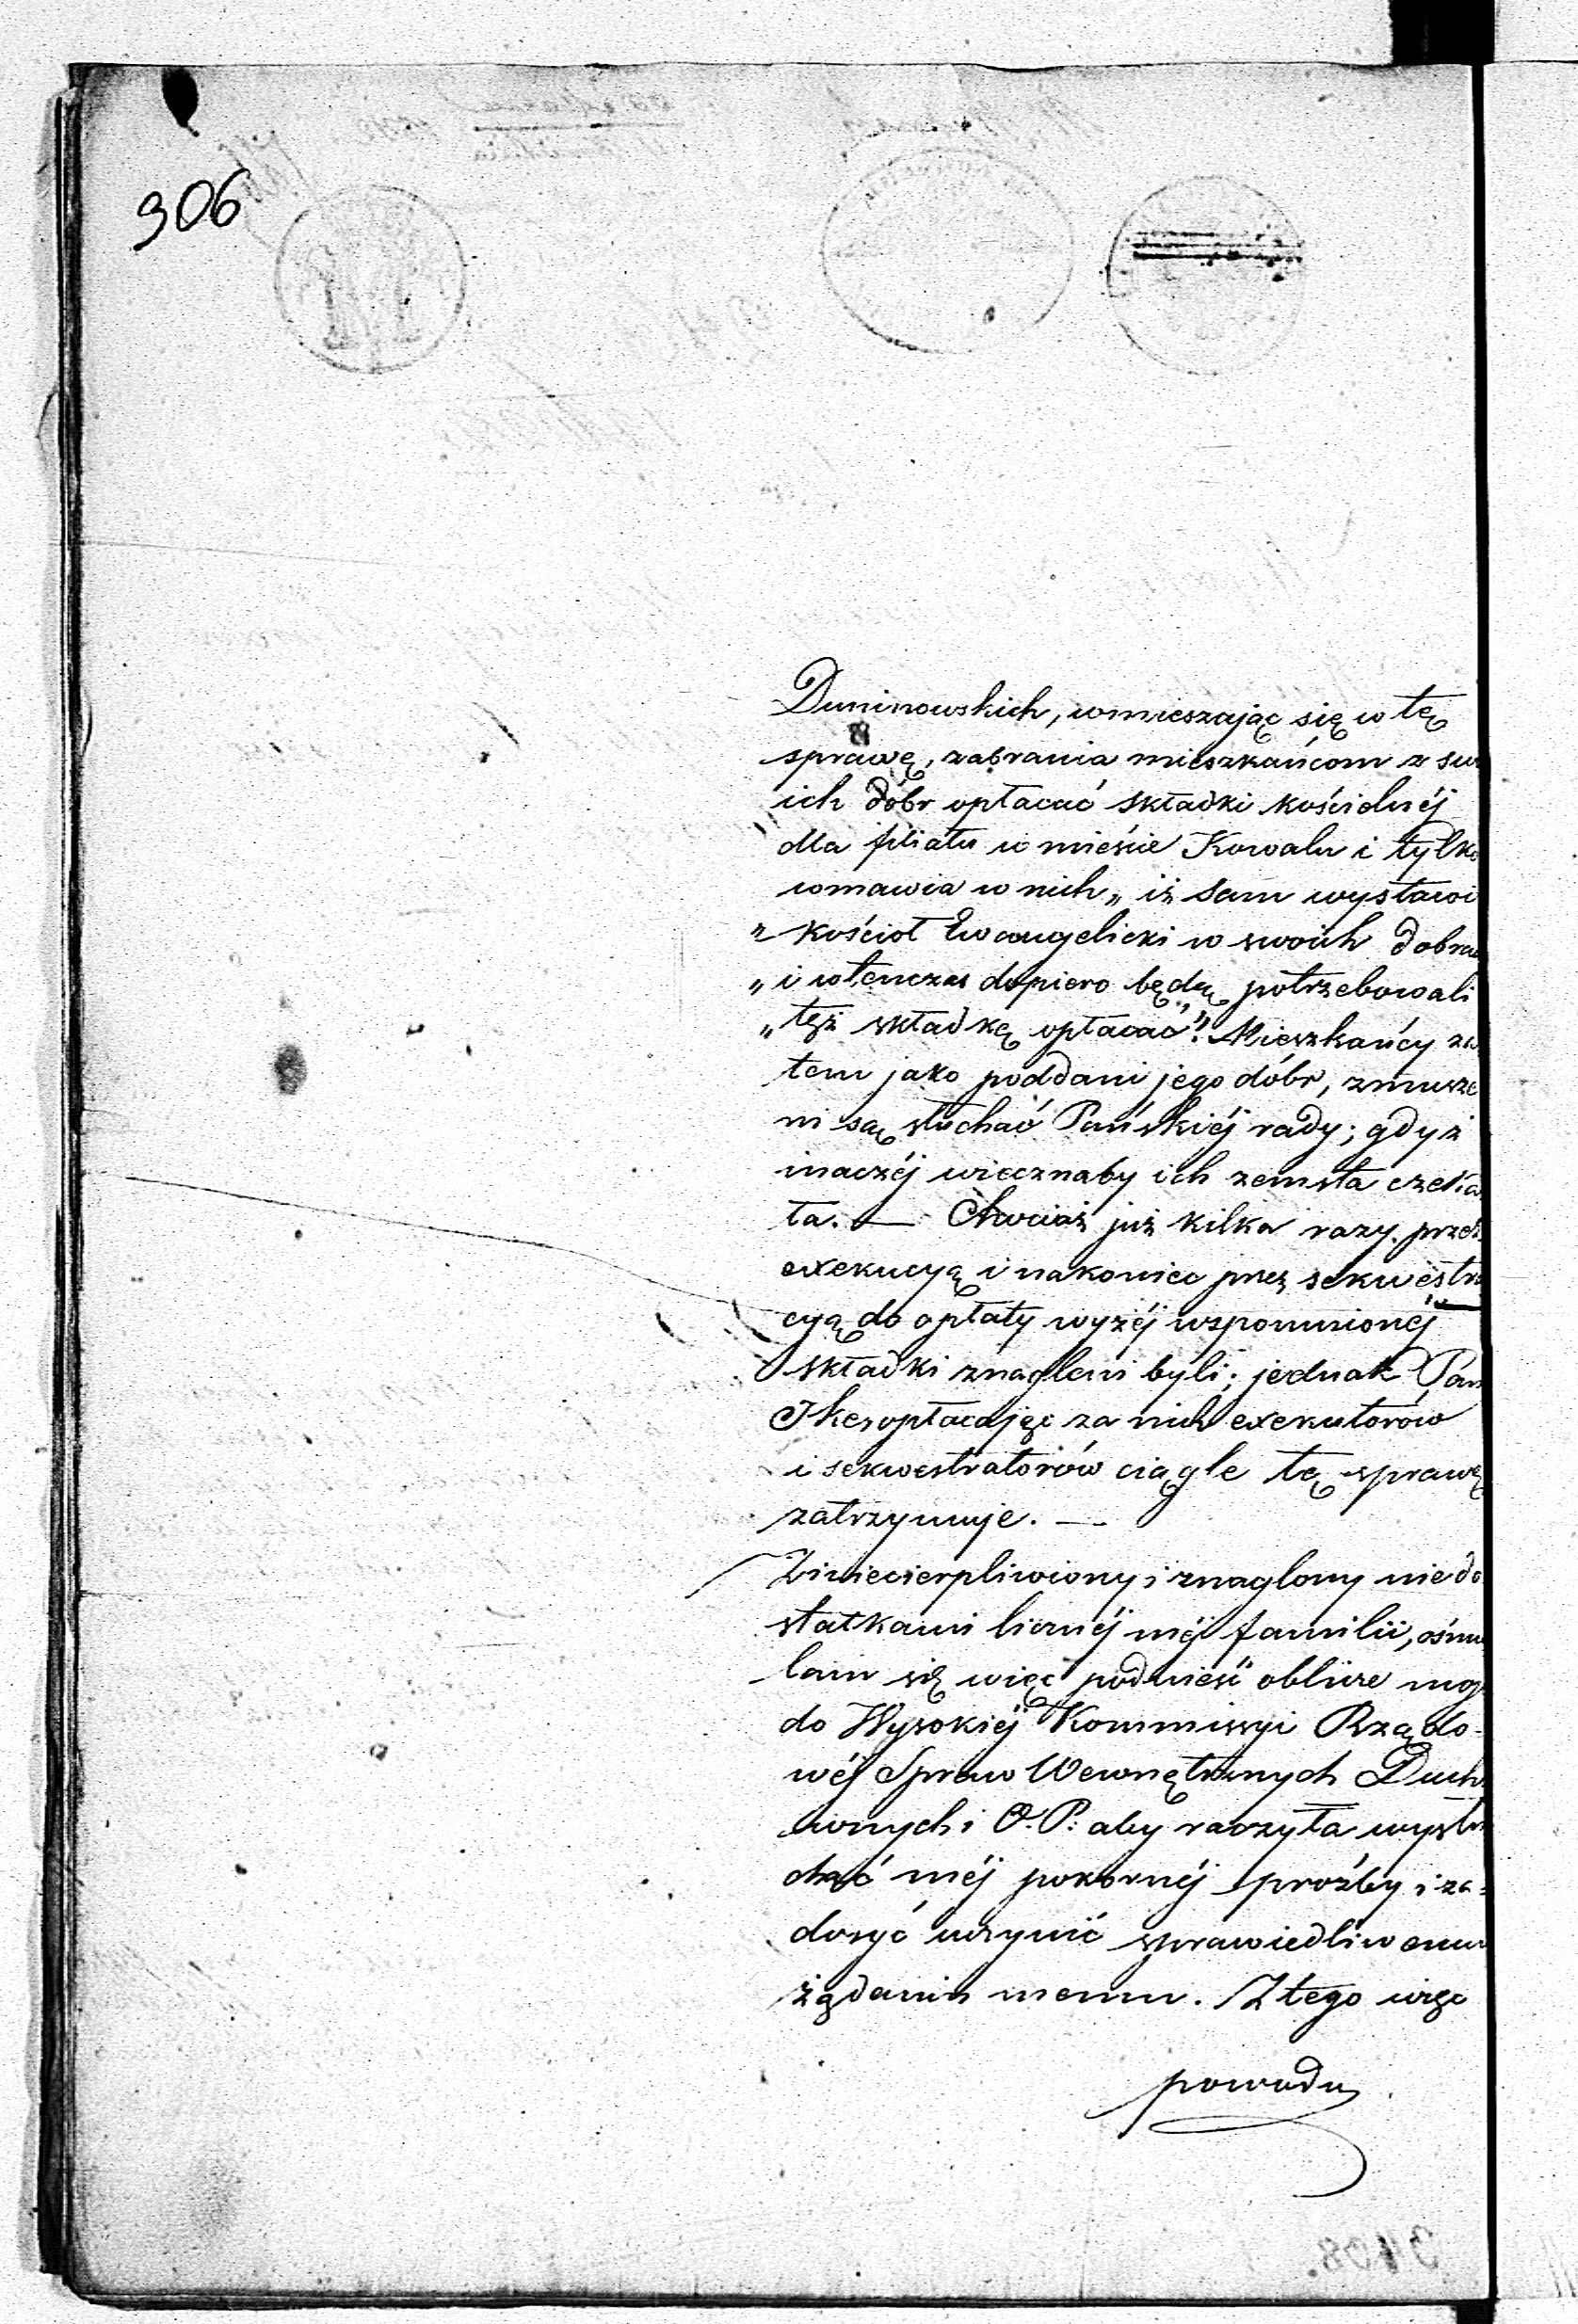 906
Duninowskich, wmieszając się w tę
sprawę, zabrania mieszkańcom z swo
ich dóbr opłacać składki kościelnéj
dla filiału w mieście Kowalu i tylko
wmawia w nich „iż sam wystawi
„kościoł Ewangelicki w swoich dobrac
„i wtenczas dopiero będą potrzebowali
„też składkę opłacać". Mieszkańcy za
tem jako poddani jego dóbr, zmusze
ni są słuchać Pańskiéj rady; gdyż
inaczéj wiecznaby ich zemsta czeka
ła. — Chociaż już kilka razy przez
exekucyą i nakoniec przez sekwestra
cyą do opłaty wyżéj wspomnionéj
składki znagleni byli; jednak Pan
Ike, opłacając za nich exekutorów
i sekwestratorów ciągle tę sprawę
zatrzymuje. —
Zniecierpliwiony i znaglony niedo
statkami licznéj méj familii, ośmie
lam się więc podnieść oblicze moje
do Wysokiéj Kommissyi Rządo-
wéj Spraw Wewnętrznych Ducho
wnych i O. P. aby raczyła wysłu
chać méj pokornéj proźby i za-
dosyć uczynić sprawiedliwemu
żądaniu memu. Z tego więc
powodu